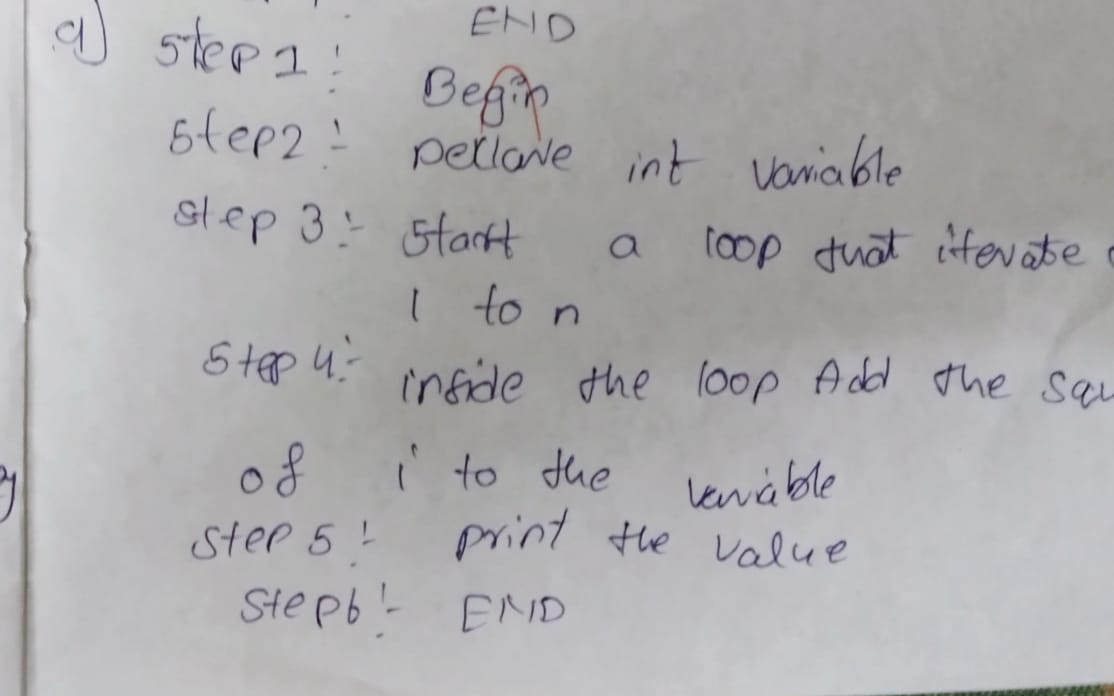 END
9) Step 1 :
Begin
Step2 :- Declare int variable
Step 3 :- Start a loop that iterate
1 to n
Step 4 :- inside the loop Add the squ
of i to the variable
Step 5 :- print the value
Step6 :- END